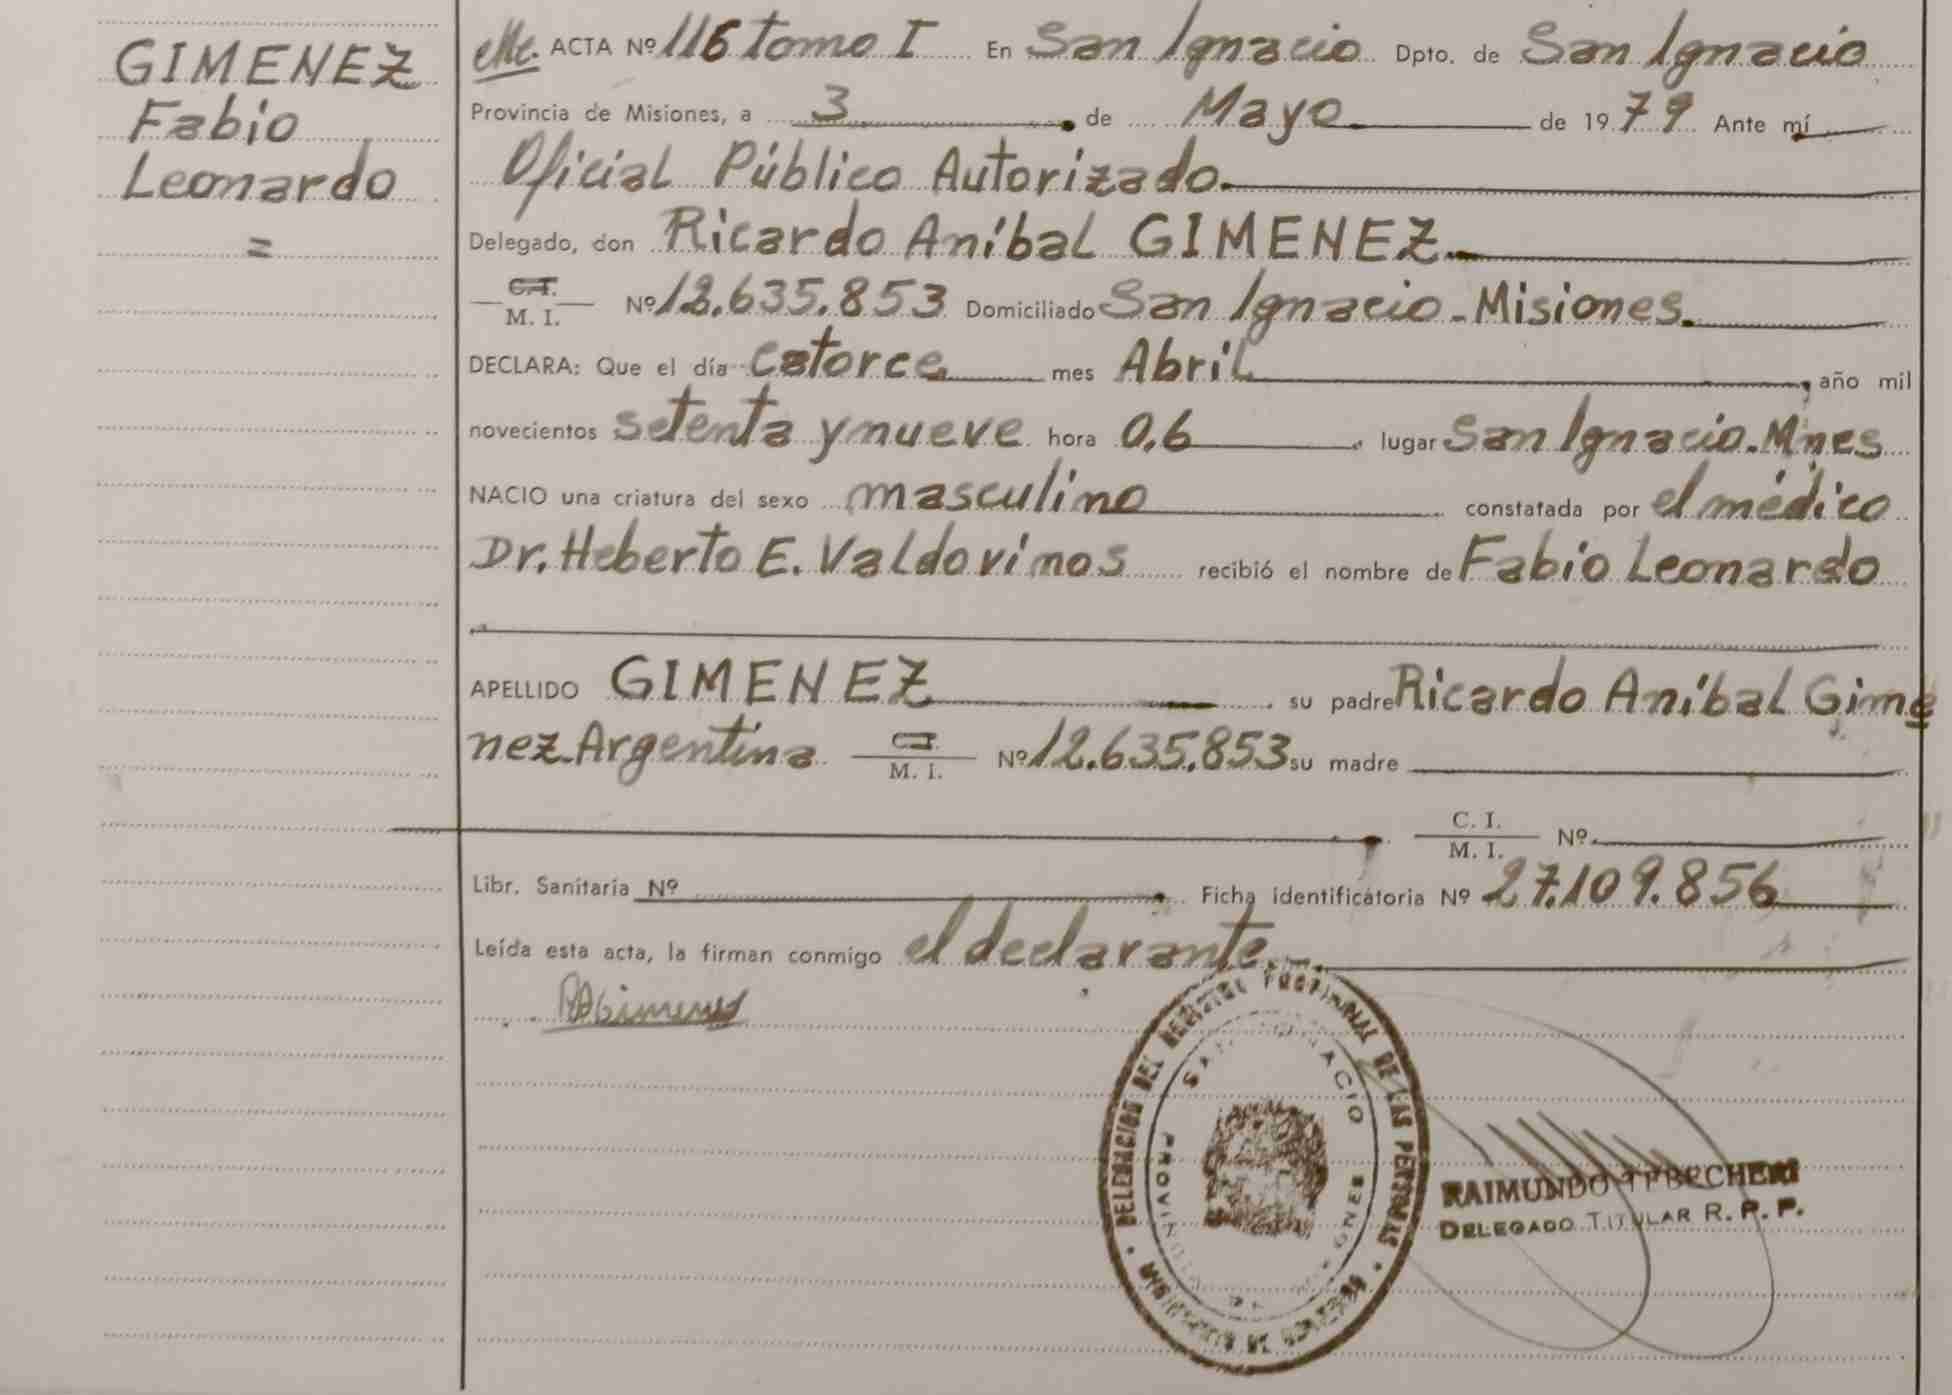 GIMENEZ
Fabio
Leonardo
=
ACTA Nº 116 tomo I En San Ignacio Dpto. de San Ignacio
Provincia de Misiones, a 3 de Mayo de 1979 Ante mí
Oficial Público Autorizado.
Delegado, don Ricardo Aníbal GIMENEZ.
C.I.
M. I. Nº 12.635.853 Domiciliado San Ignacio - Misiones.
DECLARA: Que el día catorce mes Abril, año mil
novecientos setenta y nueve hora 0,6 lugar San Ignacio. Mnes
NACIO una criatura del sexo masculino constatada por el médico
Dr. Heberto E. Valdovinos recibió el nombre de Fabio Leonardo
APELLIDO GIMENEZ su padre Ricardo Aníbal Gime
nez Argentina C.I.
M. I. Nº 12.635.853 su madre
C. I.
M. I. Nº
Libr. Sanitaria Nº Ficha identificatoria Nº 27.109.856
Leída esta acta, la firman conmigo el declarante.
RAGimenez
DELEGACION DEL REGISTRO PROVINCIAL DE LAS PERSONAS
SAN IGNACIO
PROVINCIA DE MISIONES
RAIMUNDO
DELEGADO TITULAR R. P. P.